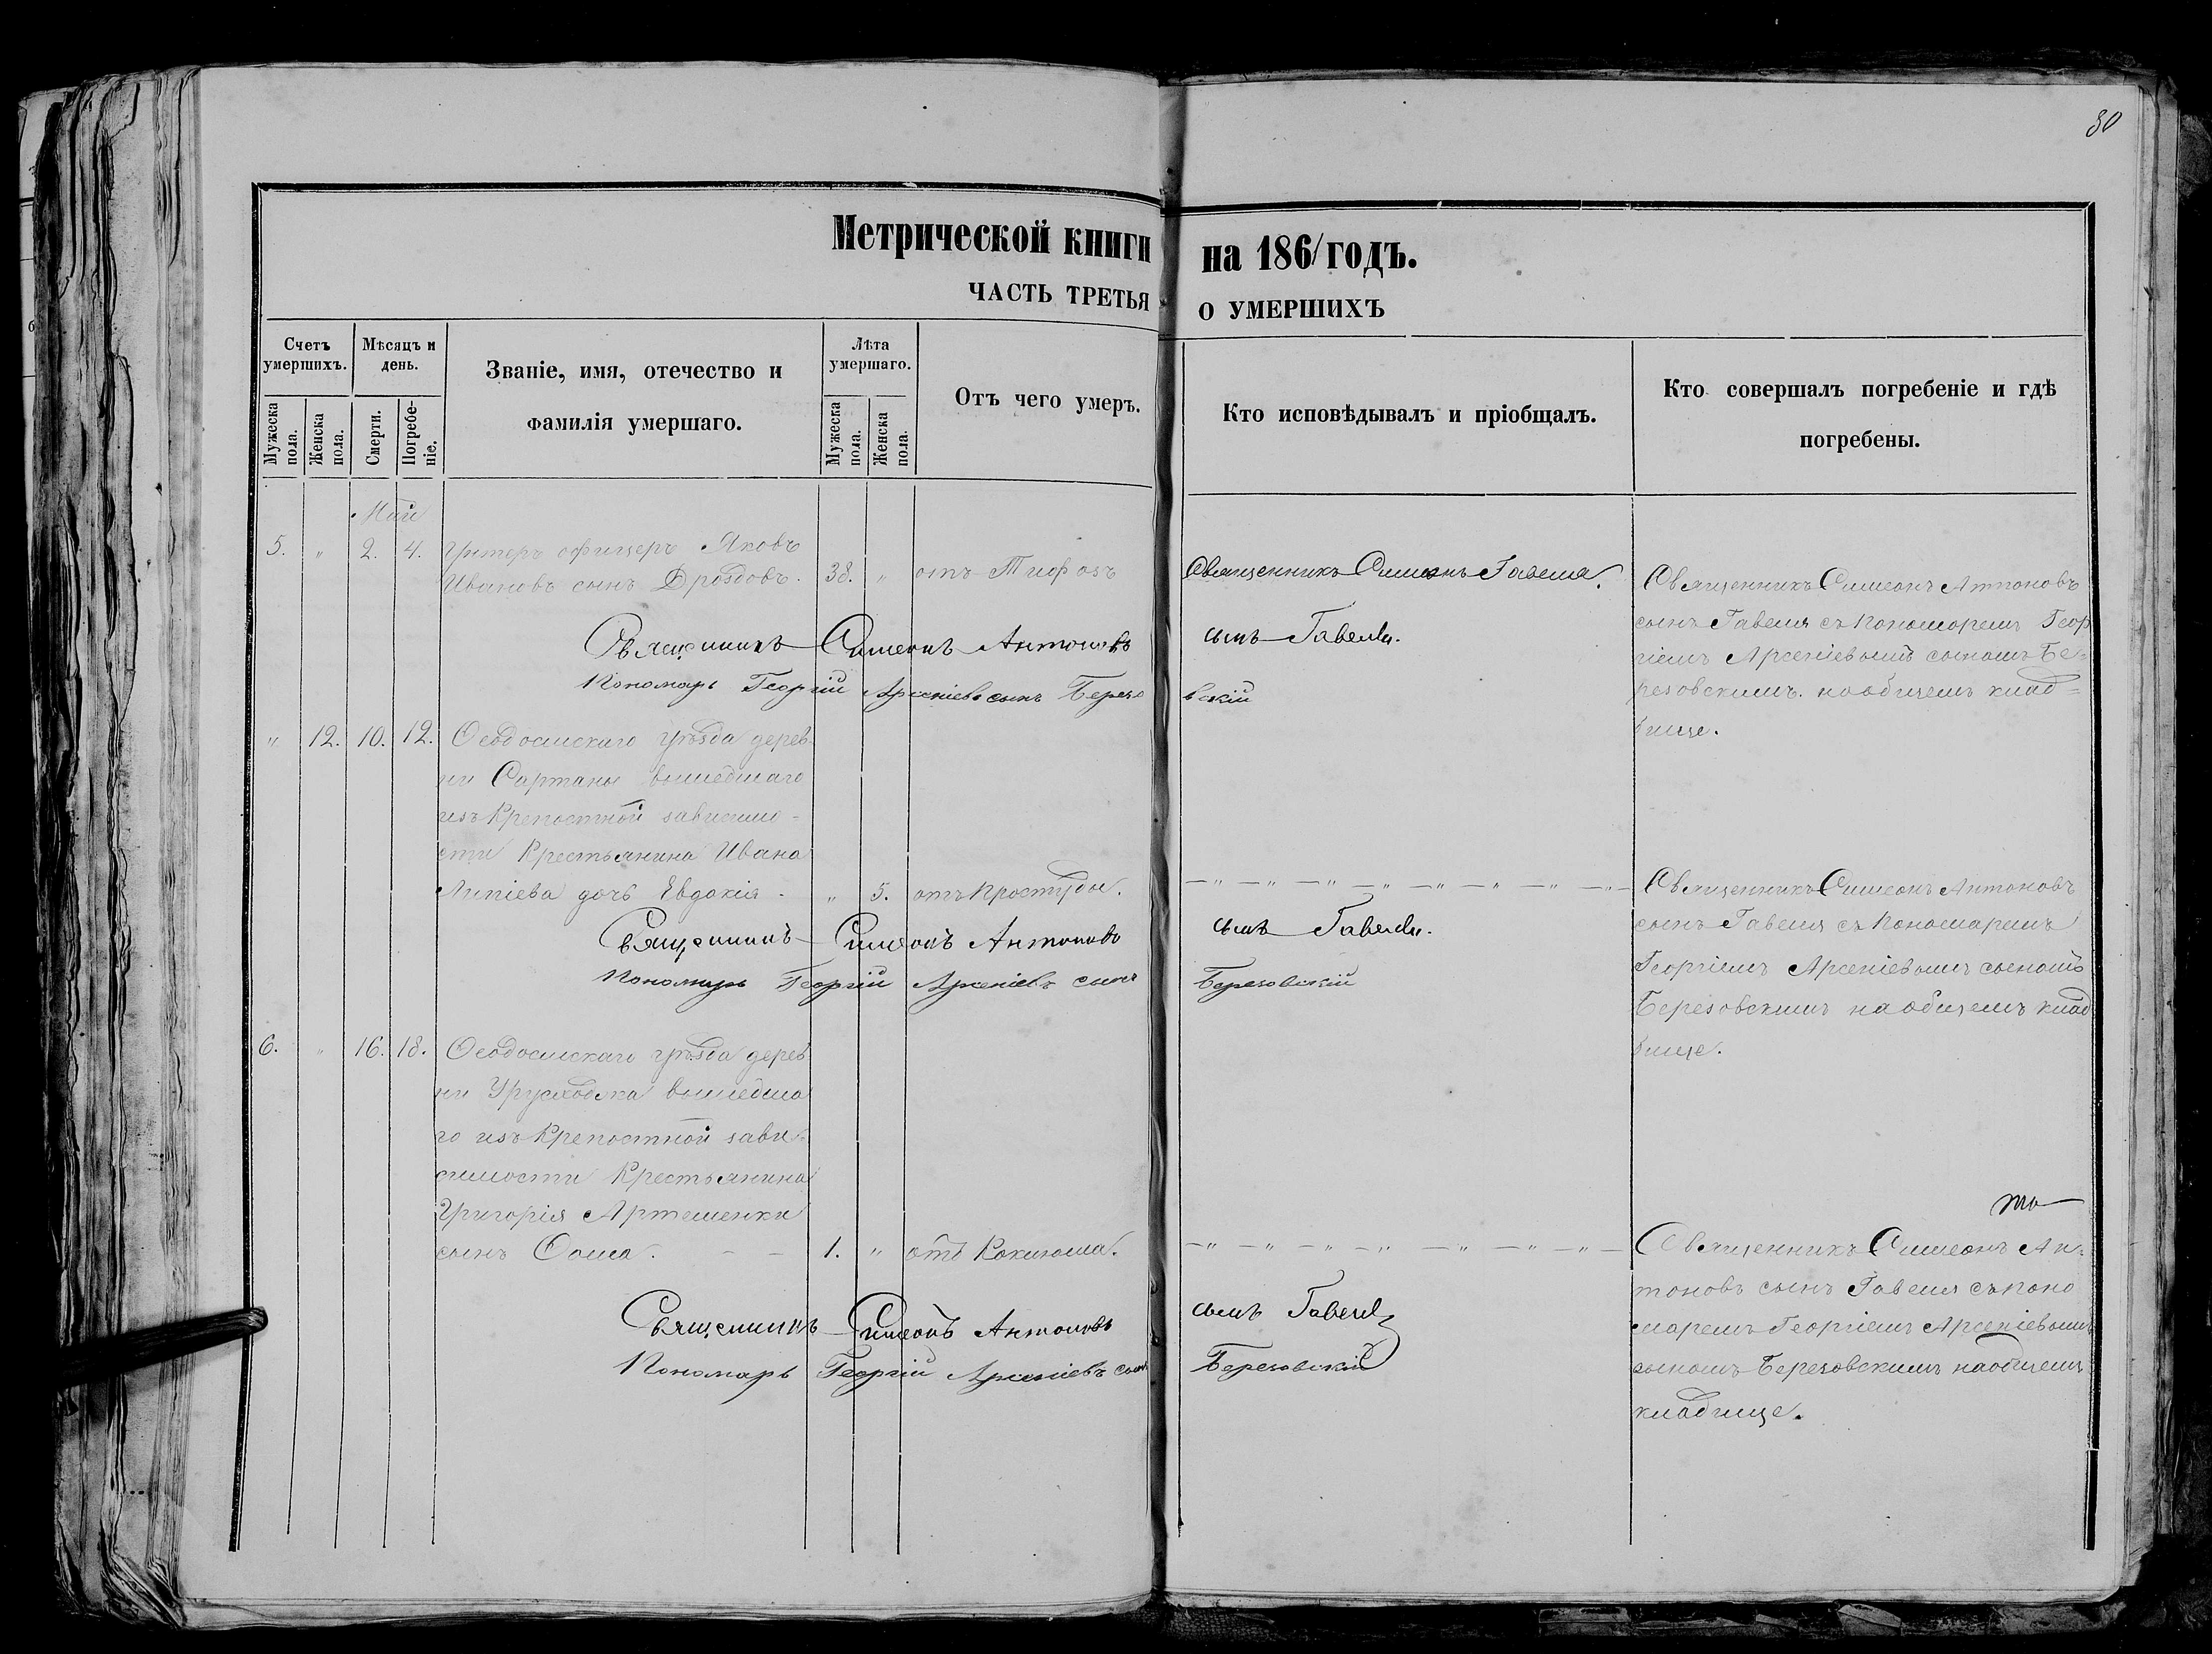 80
Метрической книги на 186/годъ.
ЧАСТЬ ТРЕТЬЯ О УМЕРШИХЪ
Счетъ умершихъ.
Мужеска пола.
Женска пола.
Мѣсяцъ и день.
Смерти.
Погребе-
ніе.
Званіе, имя, отечество и
фамилія умершаго.
Лѣта умершаго.
Мужеска пола.
Женска пола.
Отъ чего умеръ.
Кто исповѣдывалъ и пріобщалъ.
Кто совершалъ погребеніе и гдѣ
погребены.
Май
5. " 2. 4. Унтеръ офицеръ Яковъ
Ивановъ сынъ Дроздовъ. 38. " отъ Тифозъ
Священникъ Симеонъ Гавеля.
Священникъ Симеонъ Антоновъ
сынъ Гавеля съ Пономоремъ Геор
гіемъ Арсеніевымъ сыномъ Бе-
резовскимъ. наобщемъ клад=
бище.
Священникъ Симеонъ Антоновъ сынъ Гавеля.
Пономарь Георгій Арсеніевъ сынъ Березовскій
" 12. 10. 12. Ѳеодосискаго уѣзда дерев-
ни Сартаны вышедшаго
изъ Крепостной зависимо-
сти Крестьянина Ивана
Липіева дочь Евдокія - " 5. отъ Простуды.
— " — " — " — " — " — " — " — " —
Священникъ Симеонъ Антоновъ
сынъ Гавеля съ Пономаремъ
Георгіемъ Арсеніевымъ сыномъ
Березовскимъ на общемъ клад
бище.
Священникъ Симеонъ Антоновъ сынъ Гавеля.
Пономарь Георгій Арсеніевъ сынъ Березовскій
6. " 16. 18. Ѳеодосискаго уѣзда дерев
ни вышедша
го изъ Крепостной зави-
симости Крестьянина
Григорія Артеменки
сынъ Ѳома. — — 1. " отъ Коклюша.
— " — " — " — " — " — " — " —
Священникъ Симеонъ Ан-
тоновъ сынъ Гавеля съ поно
маремъ Георгіемъ Арсеніевымъ
сыномъ Березовскимъ наобщемъ
кладбище.
Священникъ Симеонъ Антоновъ сынъ Гавеля
Пономарь Георгій Арсеніевъ сынъ Березовскій